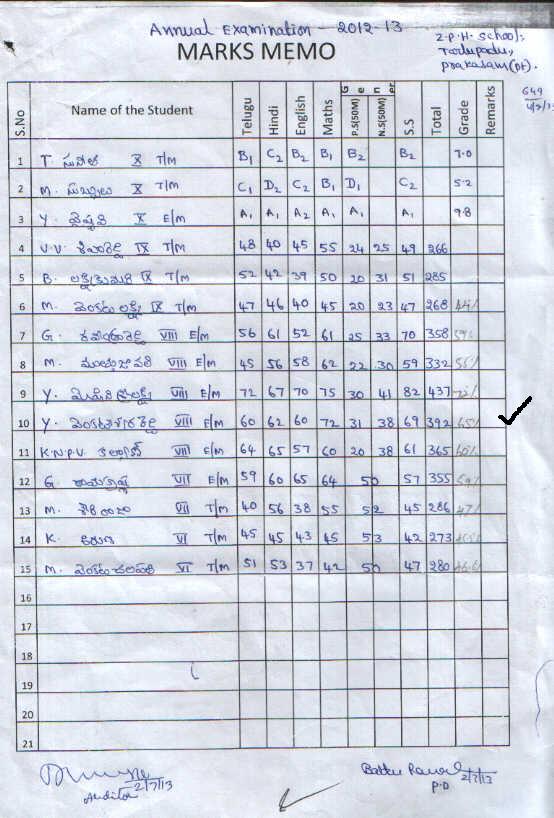 Annual Examination - 2012-13
MARKS MEMO
Z.P.H. School,
Tadupadu,
prakasam(Dt).
649
S.No Name of the Student Telugu Hindi English Maths Gener P.S(50M) N.S(50M) S.S Total Grade Remarks
1 T. సునీత X T/M B1 C2 B2 B1 B2 B2 7.0
2 M. సుబ్బులు X T/M C1 D2 C2 B1 D1 C2 5.2
3 Y. వైష్ణవి X E/M A1 A1 A2 A1 A1 A1 9.8
4 V.V. శివారెడ్డి IX T/M 48 40 45 55 24 25 49 266
5 B. లక్ష్మీకుమారి IX T/M 52 42 39 50 20 31 51 285
6 M. వెంకట లక్ష్మి IX T/M 47 46 40 45 20 23 47 268 44%
7 G. VIII E/M 56 61 52 61 25 33 70 358 59%
8 M. VIII E/M 45 56 58 62 22 30 59 332 55%
9 Y. VIII E/M 72 67 70 75 30 41 82 437 72%
10 Y. వెంకటేశ్వరరెడ్డి VIII E/M 60 62 60 72 31 38 69 392 65%
11 K.N.P.V. కళ్యాణ్ VIII E/M 64 65 57 60 20 38 61 365 60%
12 G. రామకృష్ణ VII E/M 59 60 65 64 50 57 355 59%
13 M. VII T/M 40 56 38 55 52 45 286 47%
14 K. కరుణ VI T/M 45 45 43 45 53 42 273
15 M. వెంకట చలపతి VI T/M 51 53 37 42 50 47 280
16
17
18
19
20
21
2/7/13
Auditor
2/7/13
P.D